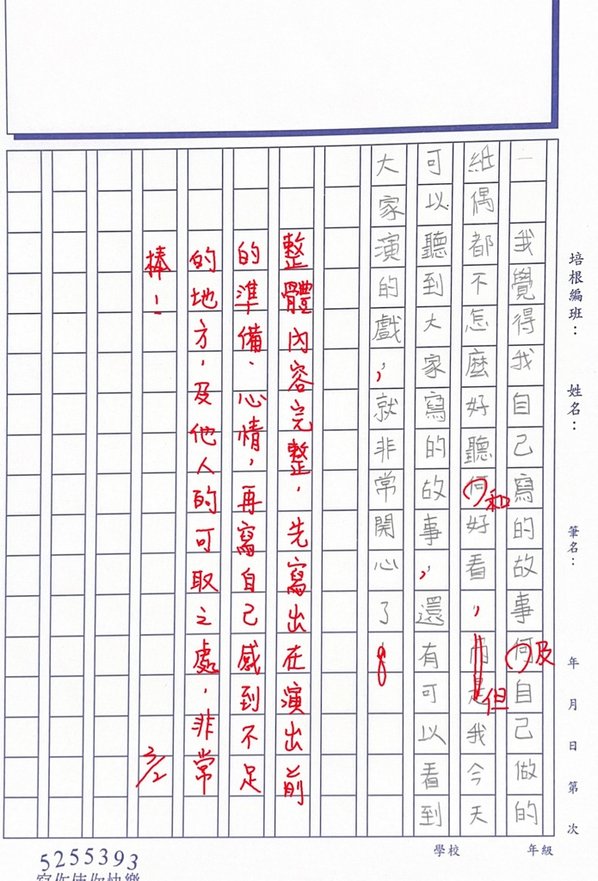 培根編班：　姓名：　筆名：　年　月　日　第　次
一　我覺得我自己寫的故事何自己做的
及
紙偶都不怎麼好聽何好看，而是我今天
和
但
可以聽到大家寫的故事，還有可以看到
大家演的戲，就非常開心了。
整體內容完整，先寫出在演出前
的準備、心情，再寫自己感到不足
的地方，及他人的可取之處，非常
棒！
3/2
學校　年級
5255393